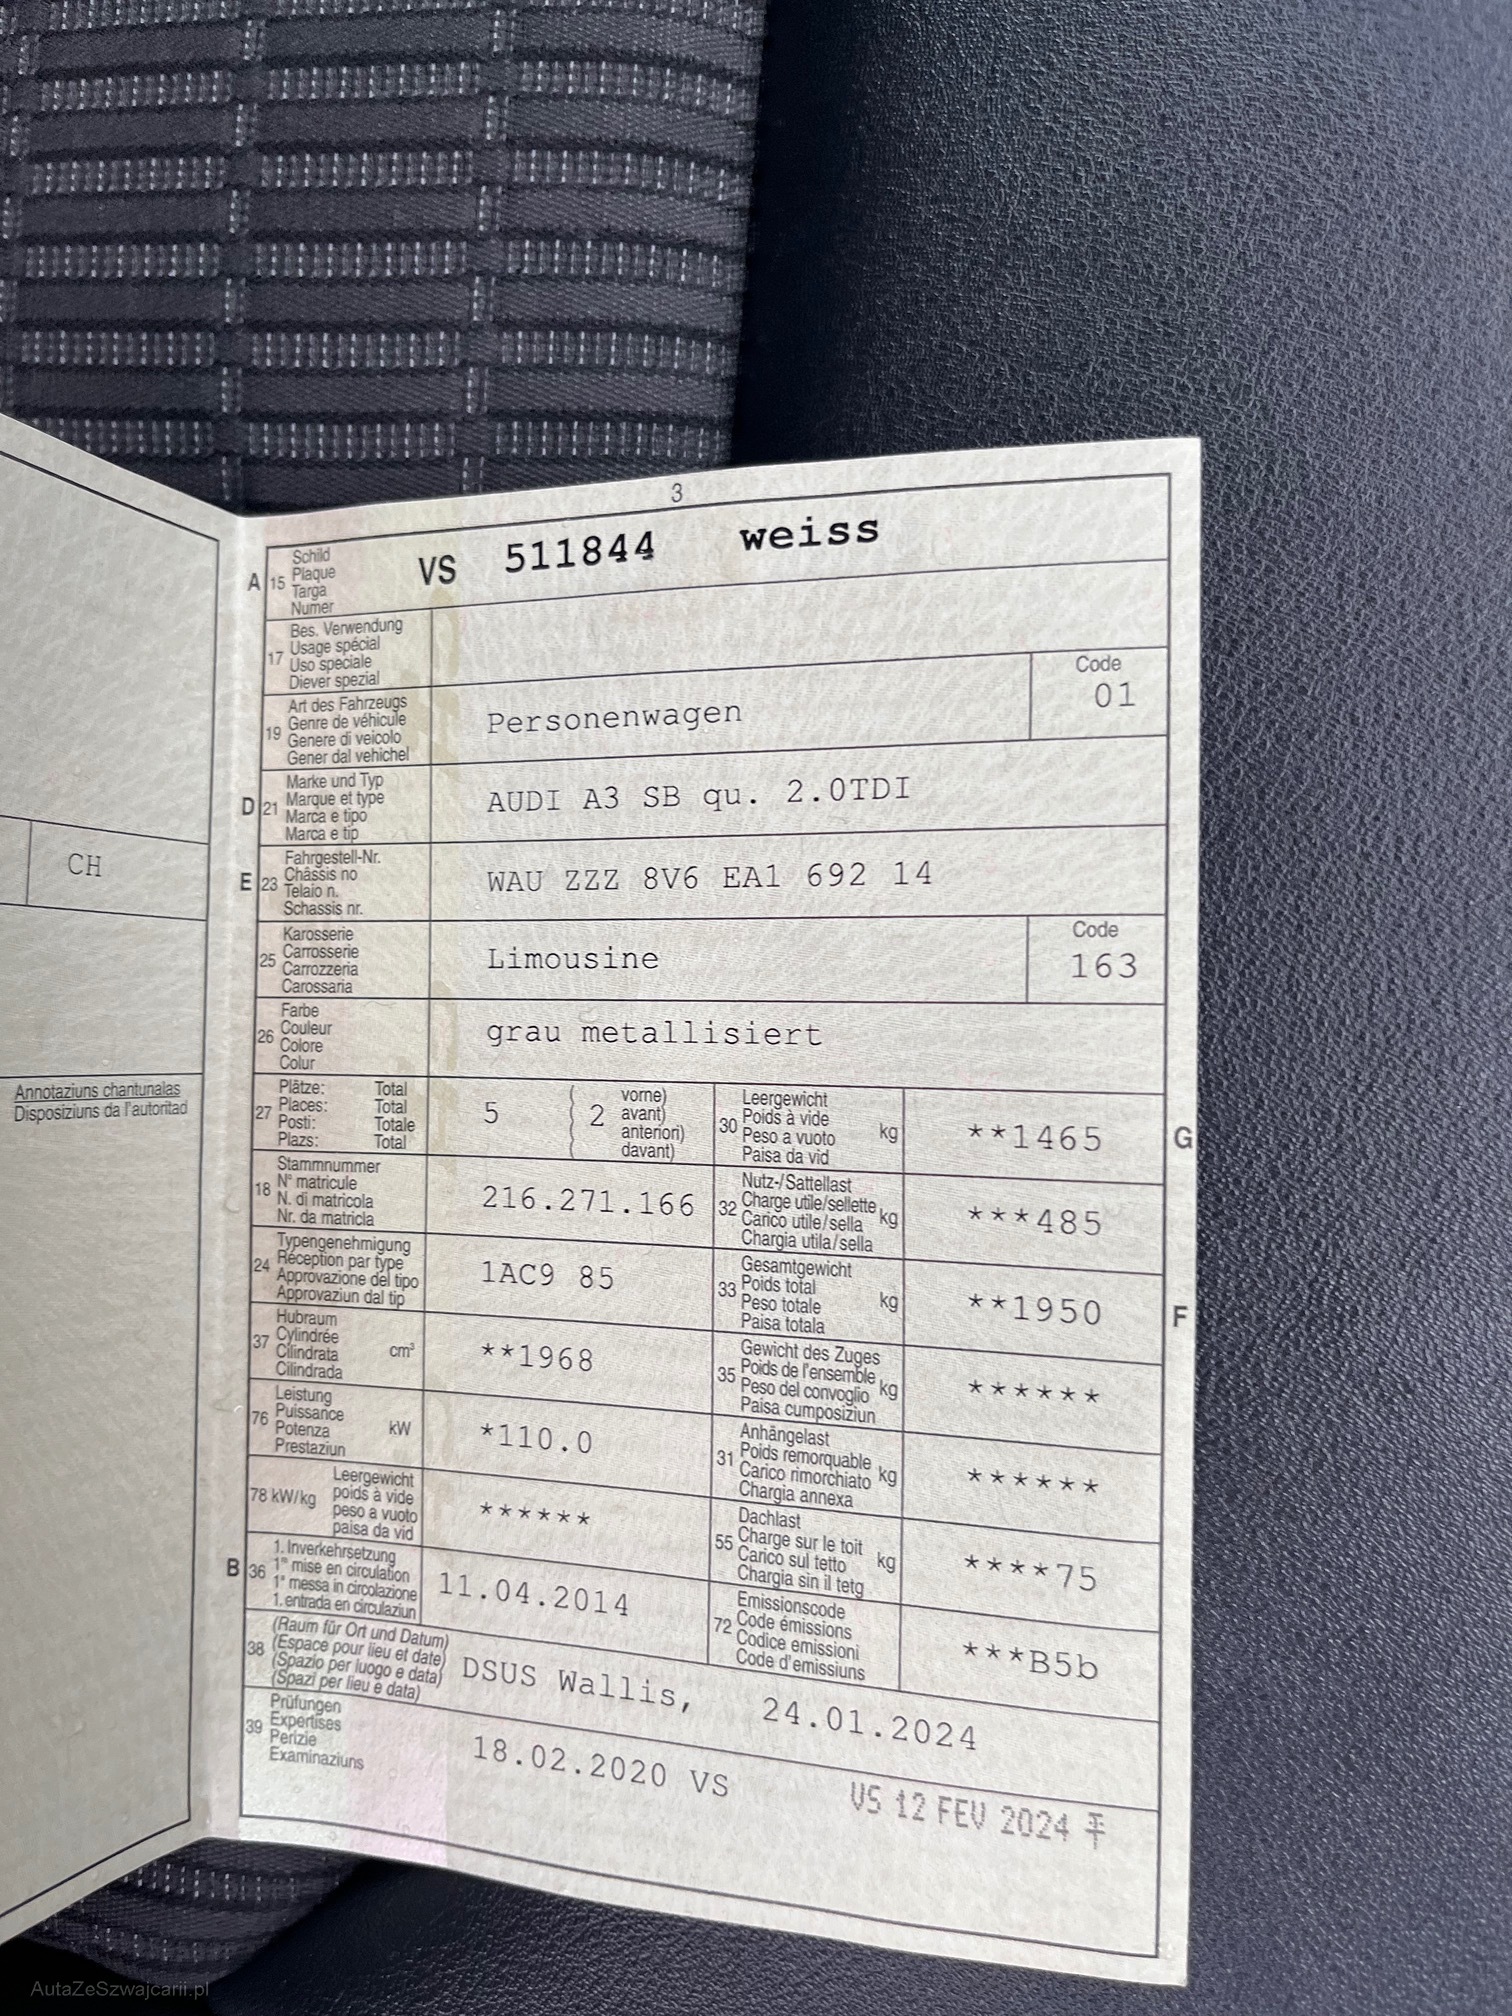 3
A 15 Schild Plaque Targa Numer VS 511844 weiss
17 Bes. Verwendung
Usage spécial
Uso speciale
Diever spezial
19 Art des Fahrzeugs
Genre de véhicule
Genere di veicolo
Gener dal vehichel
Personenwagen
Code
01
D 21 Marke und Typ
Marque et type
Marca e tipo
Marca e tip
AUDI A3 SB qu. 2.0TDI
E 23 Fahrgestell-Nr.
Châssis no
Telaio n.
Schassis nr.
WAU ZZZ 8V6 EA1 692 14
25 Karosserie
Carrosserie
Carrozzeria
Carossaria
Limousine
Code
163
26 Farbe
Couleur
Colore
Colur
grau metallisiert
27 Plätze: Total
Places: Total
Posti: Totale
Plazs: Total
5
2
vorne)
avant)
anteriori)
davant)
30 Leergewicht
Poids à vide
Peso a vuoto
Paisa da vid
kg
**1465
G
18 Stammnummer
N° matricule
N. di matricola
Nr. da matricla
216.271.166
32 Nutz-/Sattellast
Charge utile/sellette
Carico utile/sella
Chargia utila/sella
kg
***485
24 Typengenehmigung
Réception par type
Approvazione del tipo
Approvaziun dal tip
1AC9 85
33 Gesamtgewicht
Poids total
Peso totale
Paisa totala
kg
**1950
F
37 Hubraum
Cylindrée
Cilindrata
Cilindrada
cm³
**1968
35 Gewicht des Zuges
Poids de l'ensemble
Peso del convoglio
Paisa cumposiziun
kg
******
76 Leistung
Puissance
Potenza
Prestaziun
kW
*110.0
31 Anhängelast
Poids remorquable
Carico rimorchiato
Chargia annexa
kg
******
78 kW/kg
Leergewicht
poids à vide
peso a vuoto
paisa da vid
******
55 Dachlast
Charge sur le toit
Carico sul tetto
Chargia sin il tetg
kg
****75
B 36 1. Inverkehrsetzung
1re mise en circulation
1a messa in circolazione
1. entrada en circulaziun
11.04.2014
72 Emissionscode
Code émissions
Codice emissioni
Code d'emissiuns
***B5b
38 (Raum für Ort und Datum)
(Espace pour lieu et date)
(Spazio per luogo e data)
(Spazi per lieu e data)
DSUS Wallis, 24.01.2024
39 Prüfungen
Expertises
Perizie
Examinaziuns
18.02.2020 VS
VS 12 FEV 2024
CH
Annotaziuns chantunalas
Disposiziuns da l'autoritad
AutaZeSzwajcarii.pl